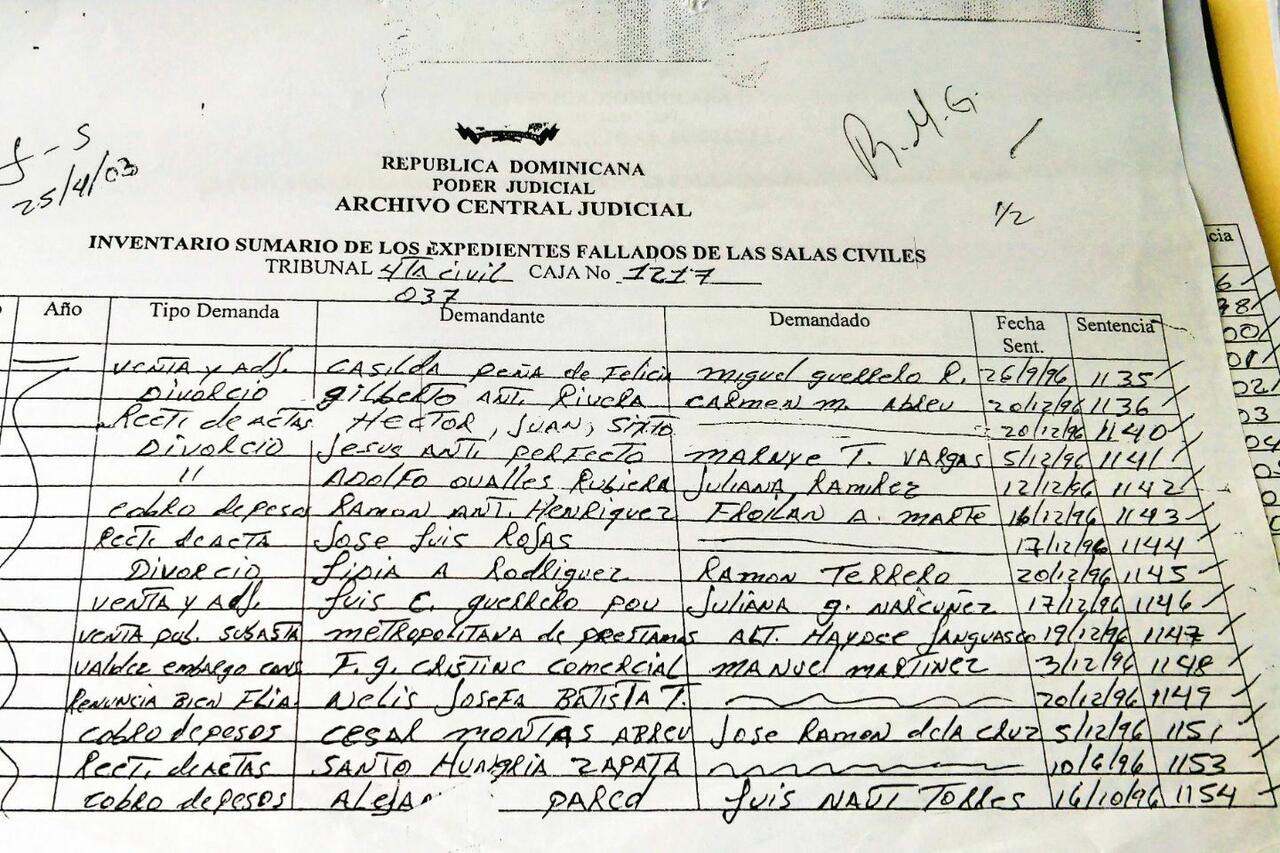 J-S
25/4/03
R.M.G.
1/2
REPUBLICA DOMINICANA
PODER JUDICIAL
ARCHIVO CENTRAL JUDICIAL
INVENTARIO SUMARIO DE LOS EXPEDIENTES FALLADOS DE LAS SALAS CIVILES
TRIBUNAL 4ta civil CAJA No 1217
037
Año Tipo Demanda Demandante Demandado Fecha Sent. Sentencia
venta y adj. Casilda Peña de Felicia Miguel Guerrero R. 26/9/96 1135
Divorcio Gilberto Ant. Rivera Carmen M. Abreu 20/12/96 1136
Recti. de actas Hector, Juan, Sixto 20/12/96 1140
Divorcio Jesus Ant. Perfecto T. Vargas 5/12/96 1141
11 Adolfo Ovalles Rubiera Juliana Ramirez 12/12/96 1142
cobro de peso Ramon Ant. Henriquez Froilan A. Marte 16/12/96 1143
Recti. de acta Jose Luis Rojas 17/12/96 1144
Divorcio Lidia A Rodriguez Ramon Terrero 20/12/96 1145
venta y adj. Luis E. Guerrero Pou Juliana G. 17/12/96 1146
venta pub. subasta Metropolitana de prestamos Alt. Haydee 19/12/96 1147
validez embargo cons F.G. Comercial Manuel Martinez 3/12/96 1148
Renuncia Bien Flia. Nelis Josefa Batista T. 20/12/96 1149
cobro de pesos Cesar Montas Abreu Jose Ramon de la Cruz 5/12/96 1151
Recti. de actas Santo Hungria Zapata 10/6/96 1153
cobro de pesos Aleja Luis Torres 16/10/96 1154